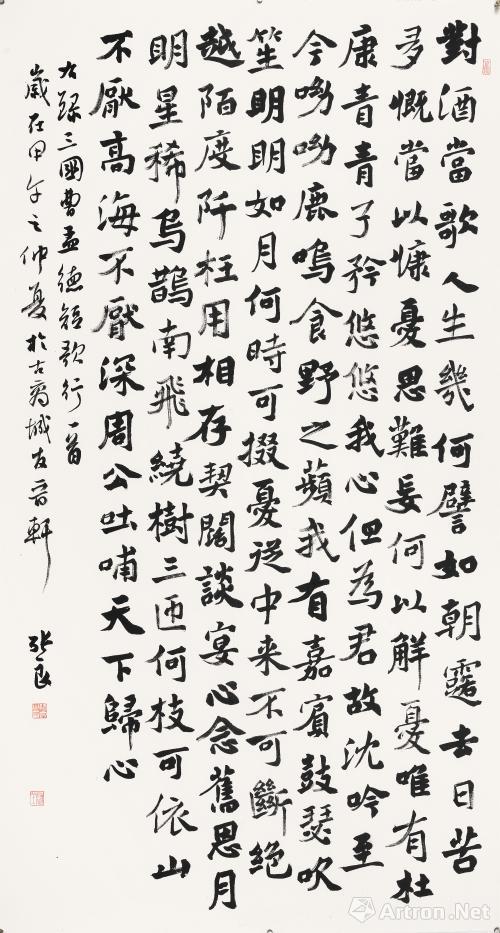 對酒當歌人生幾何譬如朝露去日苦
多慨當以慷憂思難忘何以解憂唯有杜
康青青子衿悠悠我心但為君故沈吟至
今呦呦鹿鳴食野之蘋我有嘉賓鼓瑟吹
笙明明如月何時可掇憂從中来不可斷絕
越陌度阡枉用相存契闊談宴心念舊恩月
明星稀烏鵲南飛繞樹三匝何枝可依山
不厭高海不厭深周公吐哺天下歸心
右錄三國曹孟德短歌行一首
歲在甲午之仲夏於古商城友音軒
張良
雅昌 Artron.Net